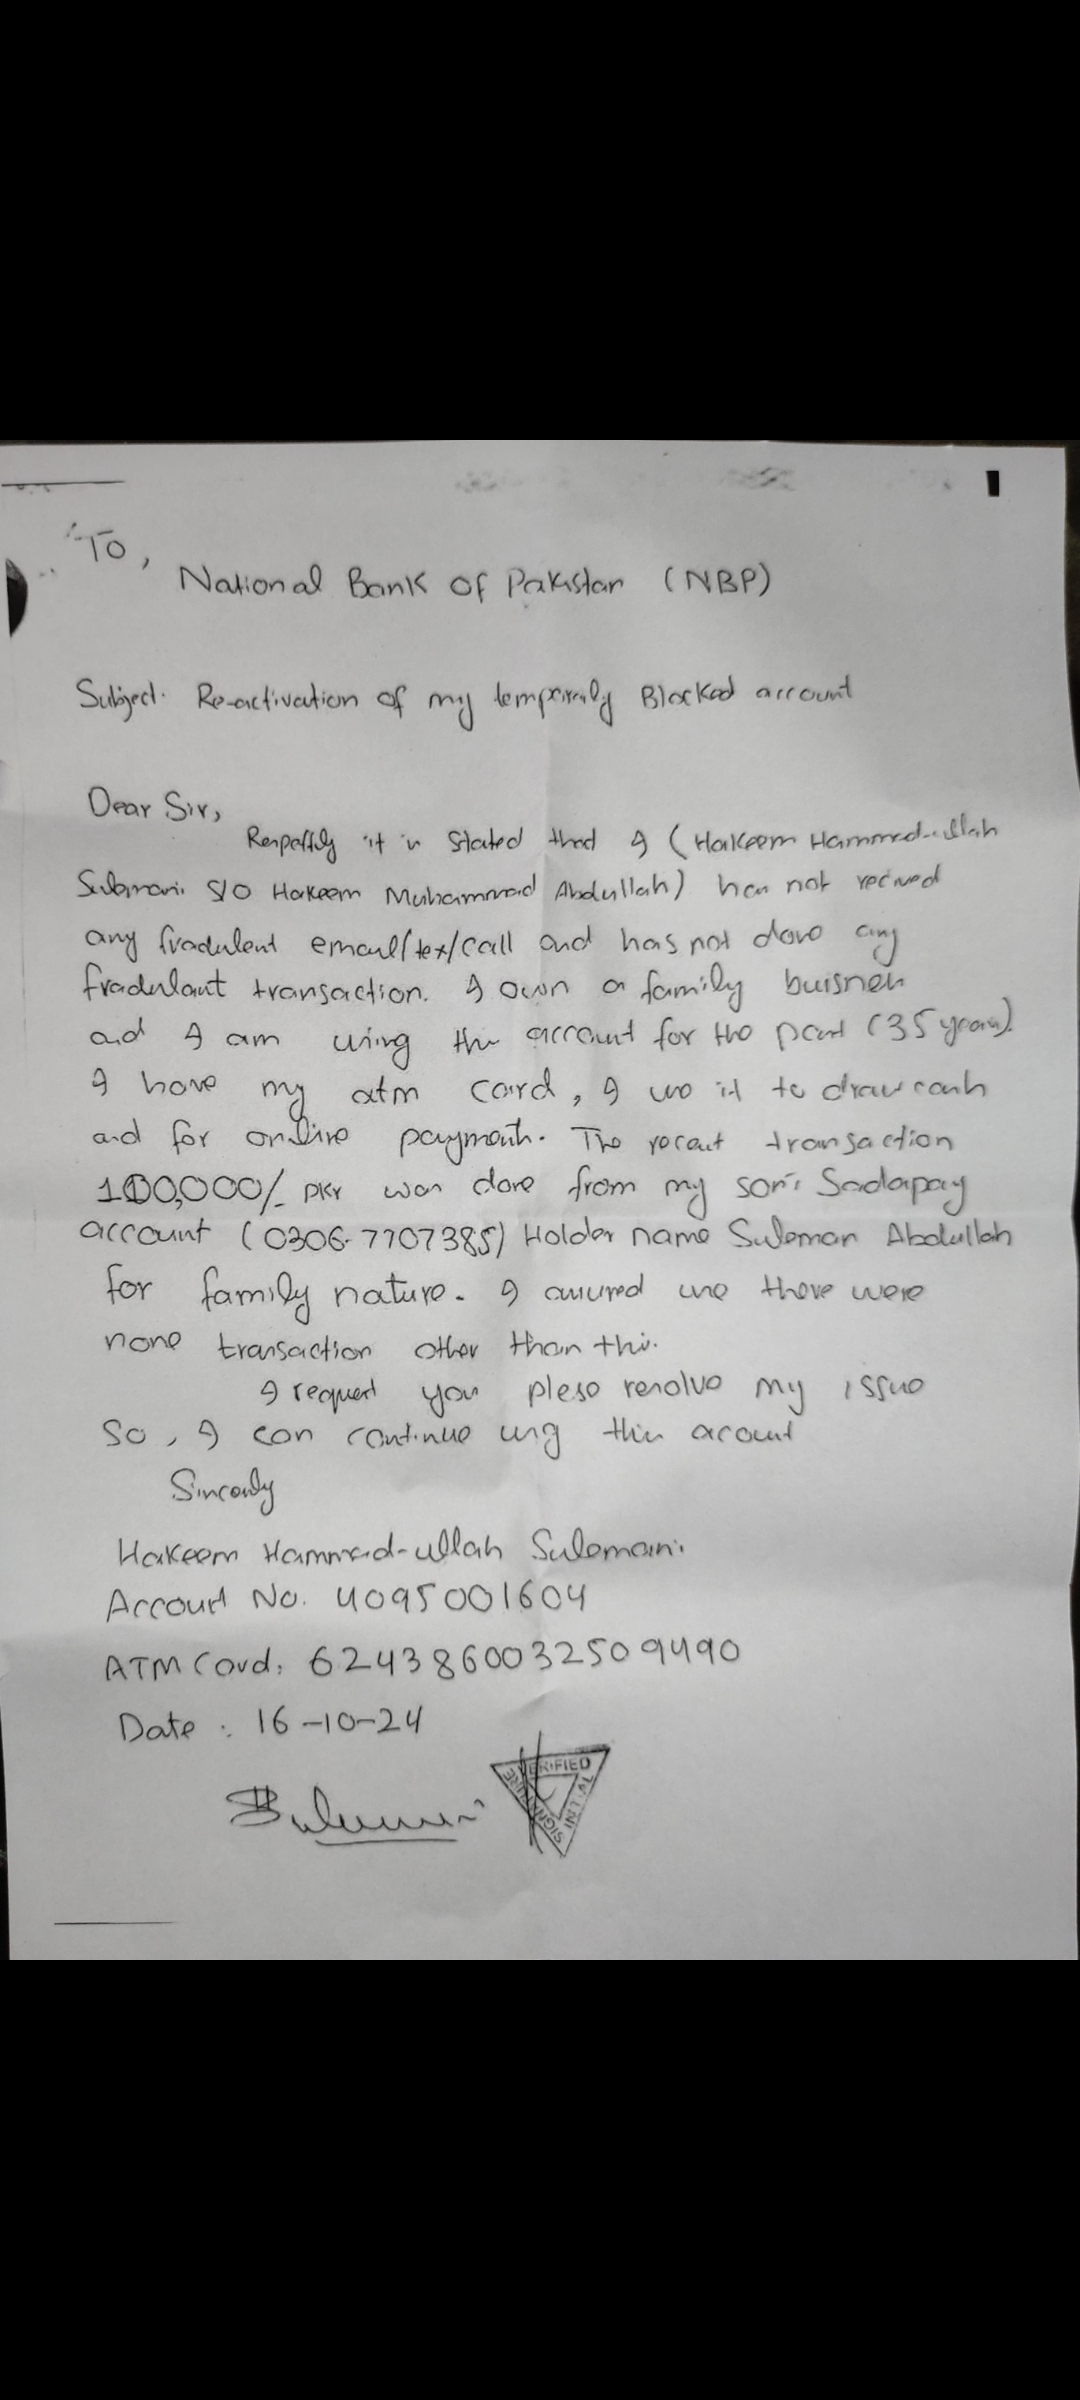 To,
National Bank of Pakistan (NBP)
Subject. Re-activation of my temporarily Blocked account
Dear Sir,
it is stated that I (Hakeem Hammad-ullah
Sulemani S/O Hakeem Muhammad Abdullah) has not recived
any fradulent email/tex/call and has not done any
fradulant transaction. I own a family buisness
and I am using the account for the past (35 years).
I have my atm card, I use it to draw cash
and for online payments. The recent transaction
100,000/- PKr was done from my son's Sadapay
account (0306-7707385) Holder name Suleman Abdullah
for family nature. I assured there were
none transaction other than this.
I request you plese resolve my issue
So, I can continue using this acount
Sincerly
Hakeem Hammad-ullah Sulemani
Account No. 4095001604
ATM Card: 6243860032509490
Date: 16-10-24
Sulemani
SIGNATURE VERIFIED